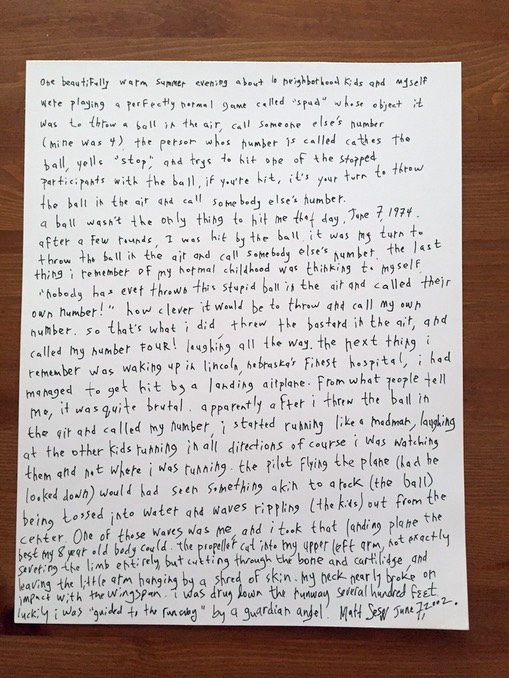 One beautifully warm summer evening about 10 neighborhood kids and myself
were playing a perfectly normal game called "spud" whose object it
was to throw a ball in the air, call someone else's number
(mine was 4), the person whos number is called cathes the
ball, yells "stop", and trys to hit one of the stopped
participants with the ball, if you're hit, it's your turn to throw
the ball in the air and call somebody else's number.
a ball wasn't the only thing to hit me that day, June 7 1974.
after a few rounds, I was hit by the ball. it was my turn to
throw the ball in the air and call somebody else's number. the last
thing i remember of my normal childhood was thinking to myself
"nobody has ever thrown this stupid ball in the air and called their
own number!" how clever it would be to throw and call my own
number. so that's what i did, threw the bastard in the air, and
called my number FOUR! laughing all the way. the next thing i
remember was waking up in lincoln, nebraska's finest hospital, i had
managed to get hit by a landing airplane. From what people tell
me, it was quite brutal. apparently after i threw the ball in
the air and called my number, i started running like a madman, laughing
at the other kids running in all directions of course i was watching
them and not where i was running. the pilot flying the plane (had he
looked down) would had seen something akin to a rock (the ball)
being tossed into water and waves rippling (the kids) out from the
center. One of those waves was me and i took that landing plane the
best my 8 year old body could. the propeller cut into my upper left arm, not exactly
severing the limb entirely but cutting through the bone and cartilidge, and
leaving the little arm hanging by a shred of skin. my neck nearly broke on
impact with the wingspan. i was drug down the runway several hundred feet.
luckily i was "guided to the runway" by a guardian angel. Matt Sesow June 7, 2002.